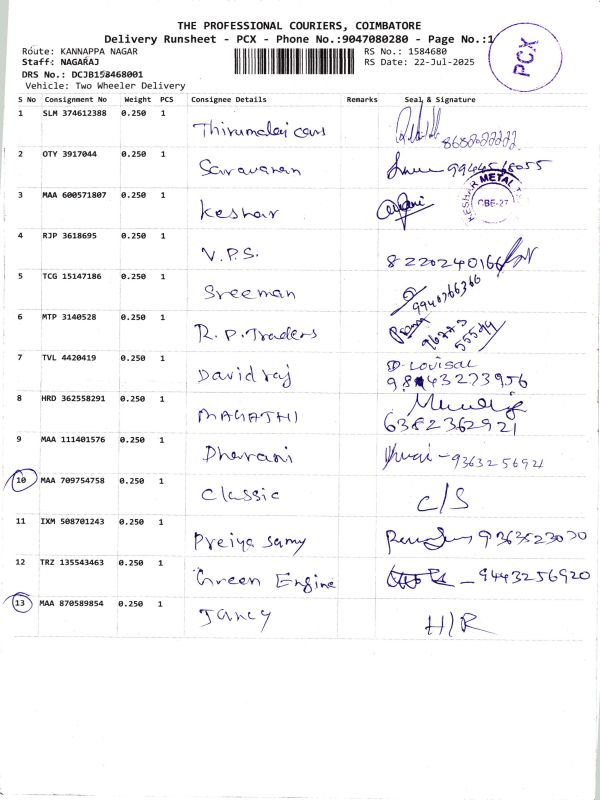 THE PROFESSIONAL COURIERS, COIMBATORE
Delivery Runsheet - PCX - Phone No.:9047080280 - Page No.:1
PCX
Route: KANNAPPA NAGAR RS No.: 1584680
Staff: NAGARAJ RS Date: 22-Jul-2025
DRS No.: DCJB158468001
Vehicle: Two Wheeler Delivery
S No Consignment No Weight PCS Consignee Details Remarks Seal & Signature
1 SLM 374612388 0.250 1 Thirumalai cars
2 OTY 3917044 0.250 1 Saravanan 9944568055
3 MAA 600571807 0.250 1 Keshar KESHAR METAL CBE-27
4 RJP 3618695 0.250 1 V.P.S. 8220240166
5 TCG 15147186 0.250 1 Sreeman 9940766366
6 MTP 3140528 0.250 1 R.P. Traders 96773 55594
7 TVL 4420419 0.250 1 David raj D. Lovisal 9843273956
8 HRD 362558291 0.250 1 MAGATHI 6382362921
9 MAA 111401576 0.250 1 Dharani - 9363256921
10 MAA 709754758 0.250 1 Classic C/S
11 IXM 508701243 0.250 1 Preiya Samy 9363523070
12 TRZ 135543463 0.250 1 Green Engine - 9443256920
13 MAA 870589854 0.250 1 Jancy H/R